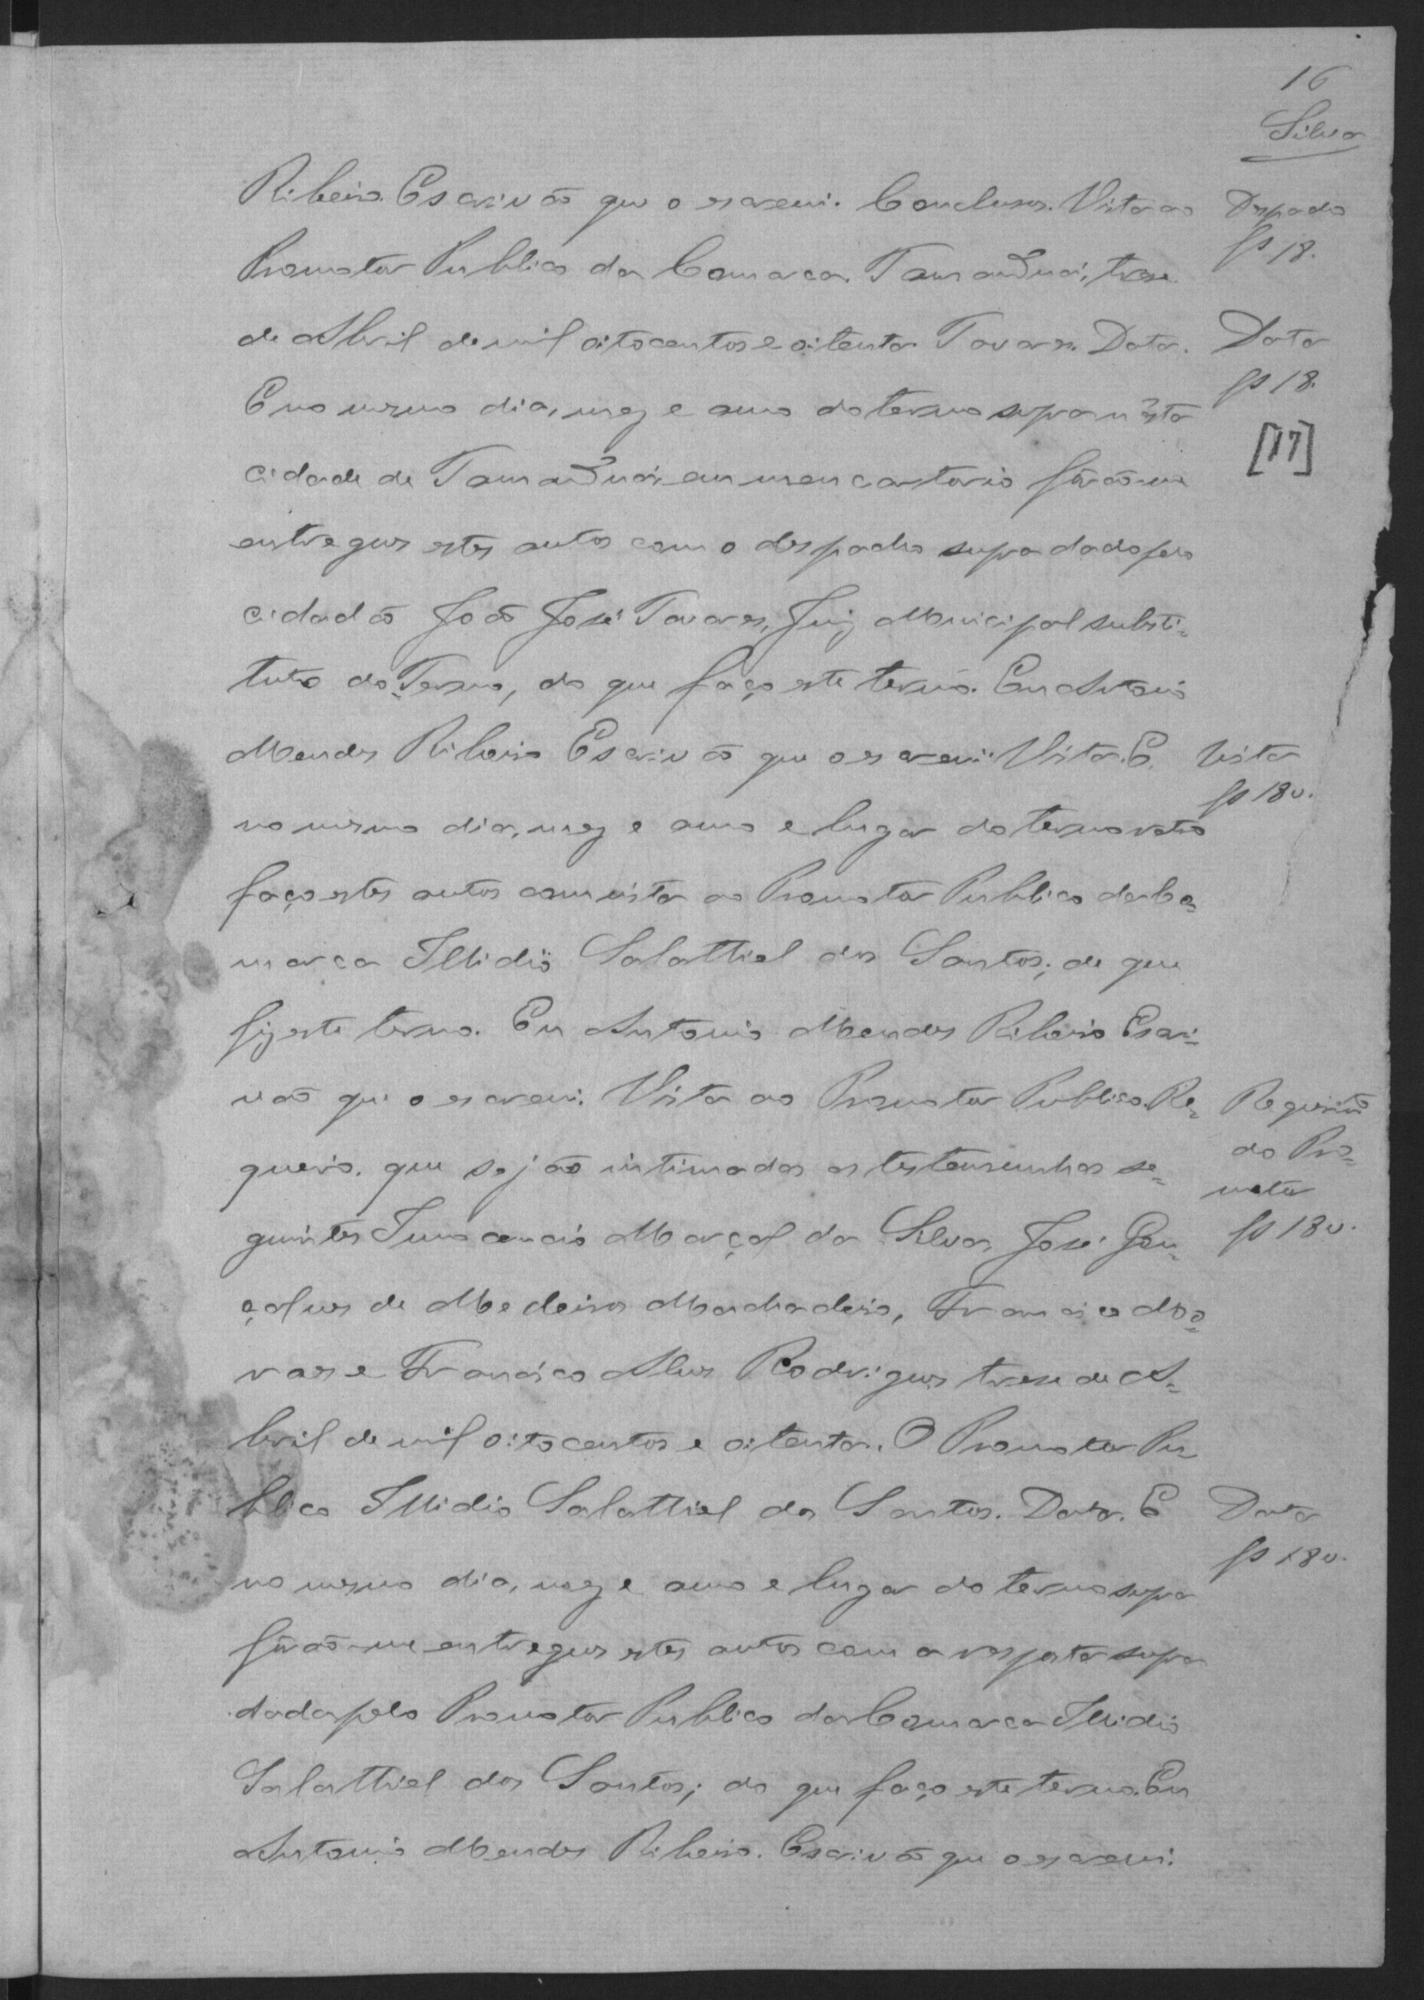 16
Silva
Ribeiro Escrivão que o escrevi. Conclusos. Vista ao
Promotor Publico da Comarca. Tamanduá, trese
de Abril de mil oitocentos e oitenta. Tavares. Data.
E no mesmo dia, mez e anno do termo supra n'esta
cidade de Tamanduá, em meu cartorio fôrão-me
entregues estes autos com o despacho supra dado pelo
cidadão João José Tavares, Juiz Municipal substi-
tuto do Termo, do que faço este termo. Eu Antonio
Mendes Ribeiro Escrivão que o escrevi. Vista. E
no mesmo dia, mez e anno e lugar do termo retro
faço estes autos com vista ao Promotor Publico da Co-
marca Illidio Salatthiel dos Santos; de que
fiz este termo. Eu Antonio Mendes Ribeiro Escri-
vão que o escrevi. Vista ao Promotor Publico. Re-
queiro. que sejão intimadas as testemunhas se-
guintes Innocencio Marçal da Silva, José Gon-
çalves de Medeiros Machadeiro, Francisco
e Francisco Alves Rodrigues, trese de A-
bril de mil oitocentos e oitenta. O Promotor Pu-
blico Illidio Salatthiel dos Santos. Data. E
no mesmo dia, mez e anno e lugar do termo supra
fôrão-me entregues estes autos com a resposta supra
dada pelo Promotor Publico da Comarca Illidio
Salatthiel dos Santos; do que faço este termo. Eu
Antonio Mendes Ribeiro. Escrivão que o escrevi.
Despacho
fs 18.
Data
fs 18.
[17]
Vista
fs 18v.
Requisito
do Pro-
motor
fs 18v.
Data
fs 18v.